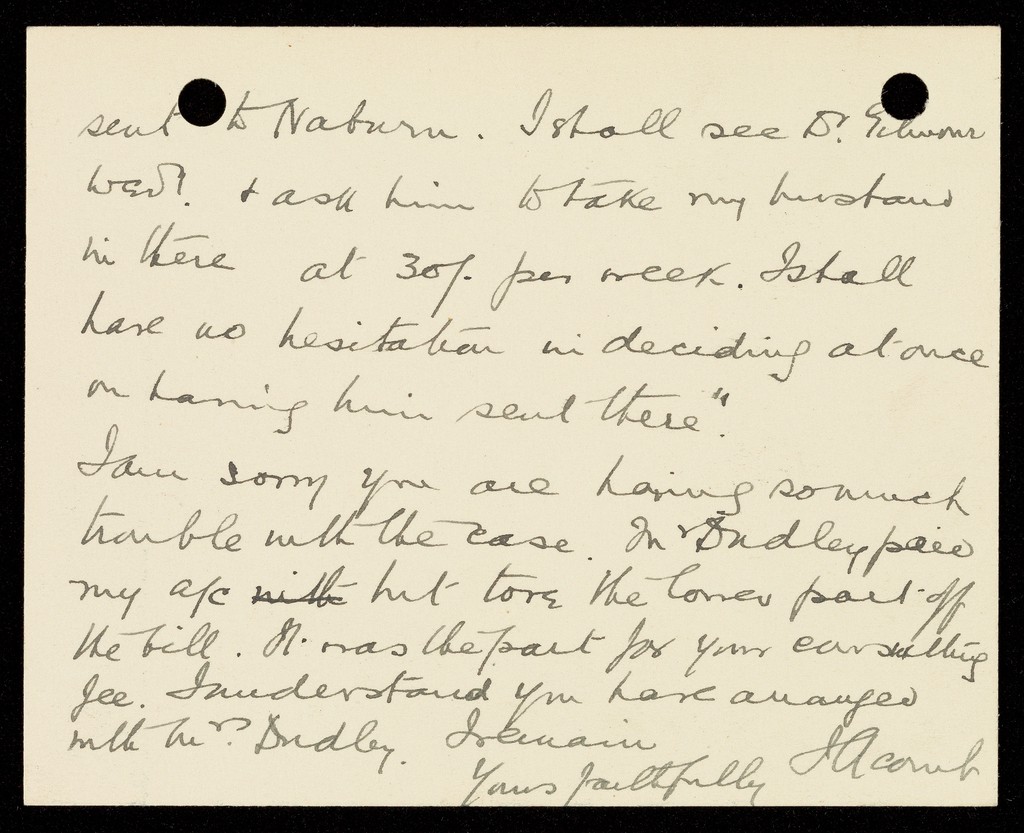 sent to Naburn. I shall see Dr. Gilmour
Wed. & ask him to take my husband
in there at 30/- per week. I shall
have no hesitation in deciding at once
on having him sent there".
I am sorry you are having so much
trouble with the case. Mr Dudley paid
my a/c with but tore the lower part off
the bill. It was the part for your consulting
fee. I understand you have arranged
with Mrs. Dudley. I remain
Yours faithfully J Acomb